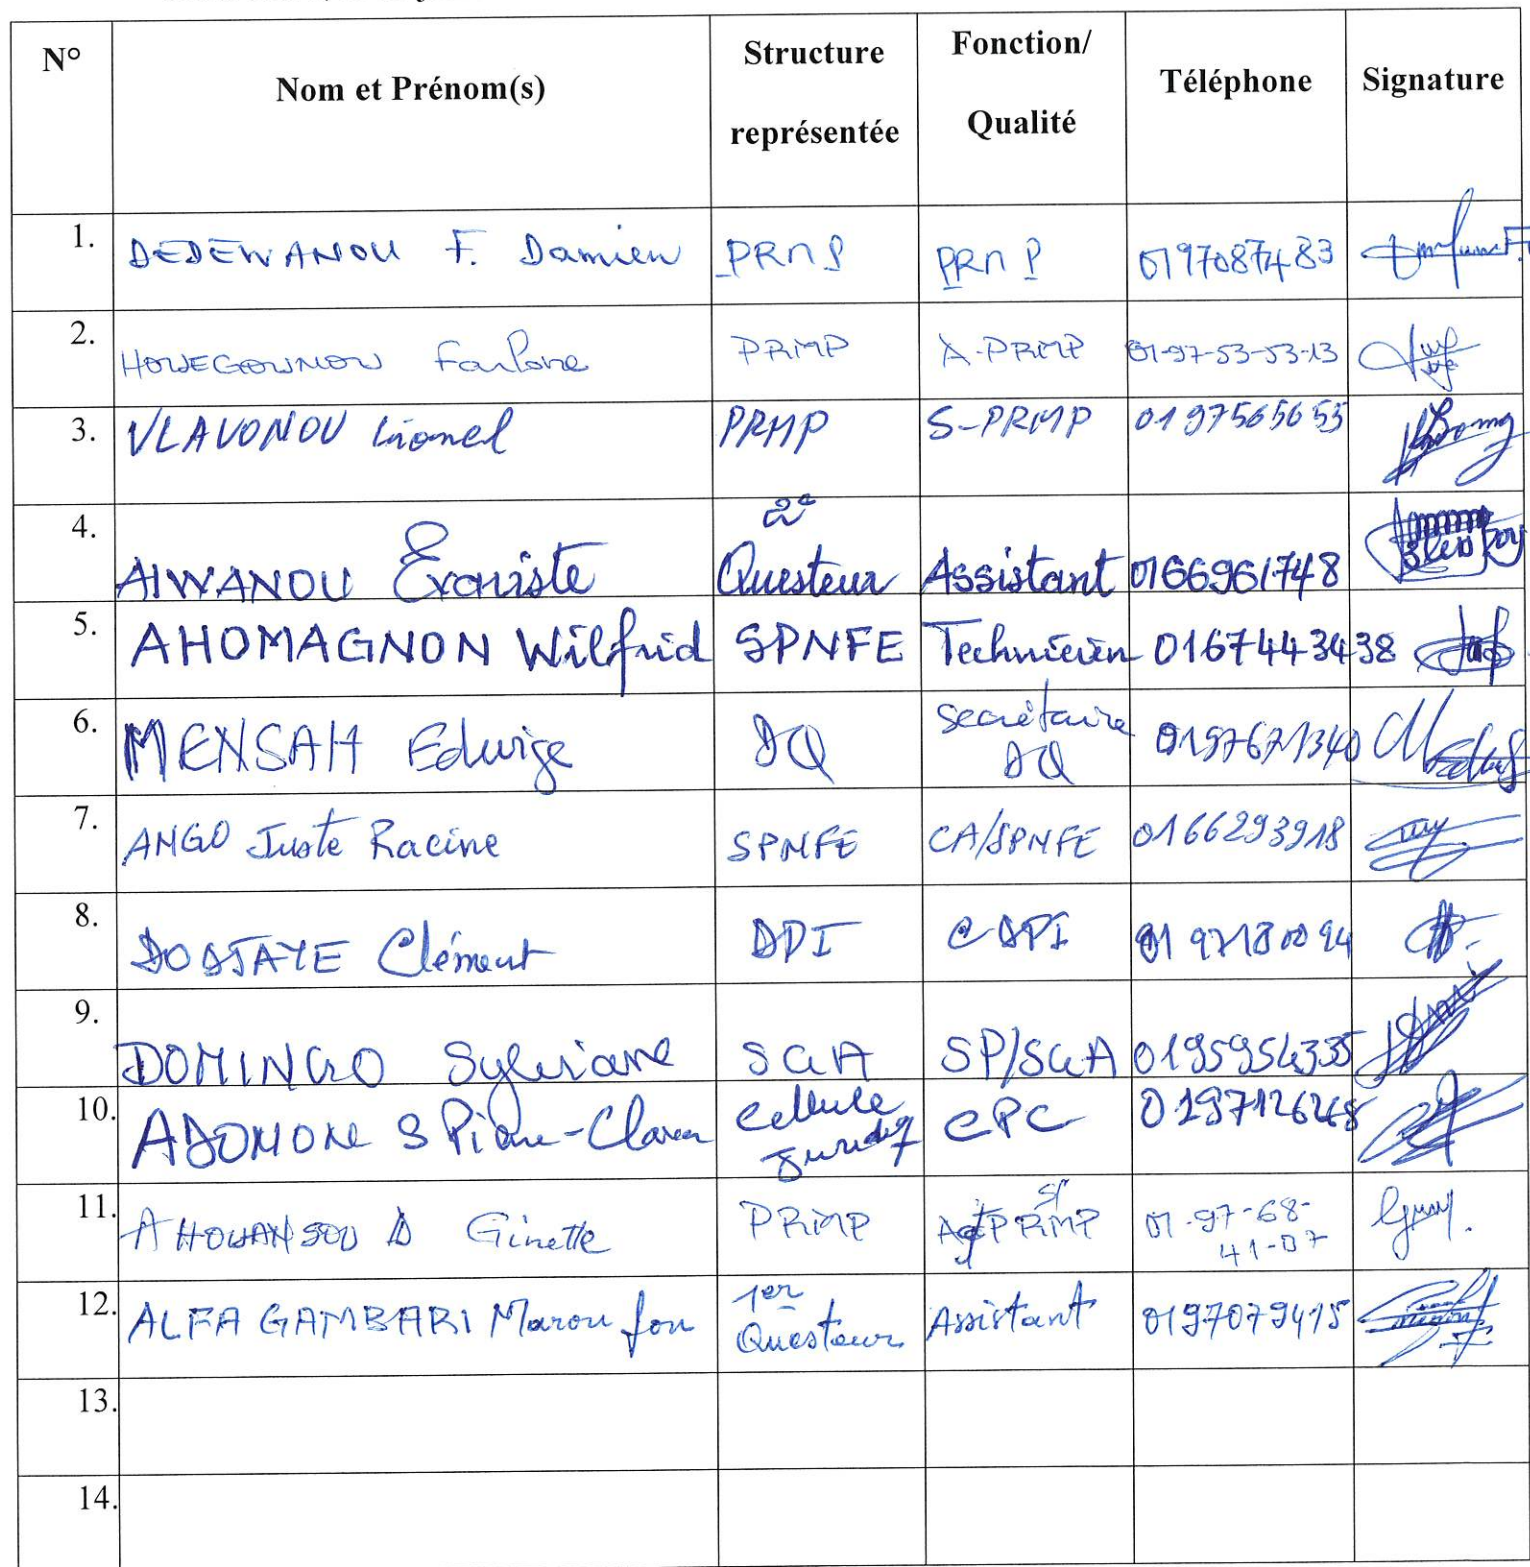 N° Nom et Prénom(s) Structure représentée Fonction/ Qualité Téléphone Signature
1. DEDEWANOU F. Damien PRMP PRMP 0197087483
2. HOUEGOUNOU PRMP A-PRMP 01-97-53-53-13
3. VLAVONOU Lionel PRMP S-PRMP 0197565655
4. AIWANOU Evariste 2e Questeur Assistant 0166961748
5. AHOMAGNON Wilfrid SPNFE Technicien 0167443438
6. MENSAH Edwige DQ secrétaire DQ 0197671340
7. ANGO Juste Racine SPNFE CA/SPNFE 0166293918
8. DODJAYE Clément DPI C-DPI 01 97180094
9. DOMINGO Sylviane SGA SP/SGA 0195954335
10. ADOMONE S Cellule CPC 0197126268
11. AHOUANSOU D Ginette PRMP PRMP 01-97-68-41-07
12. ALFA GAMBARI Maroufou 1er Questeur Assistant 0197079415
13.
14.